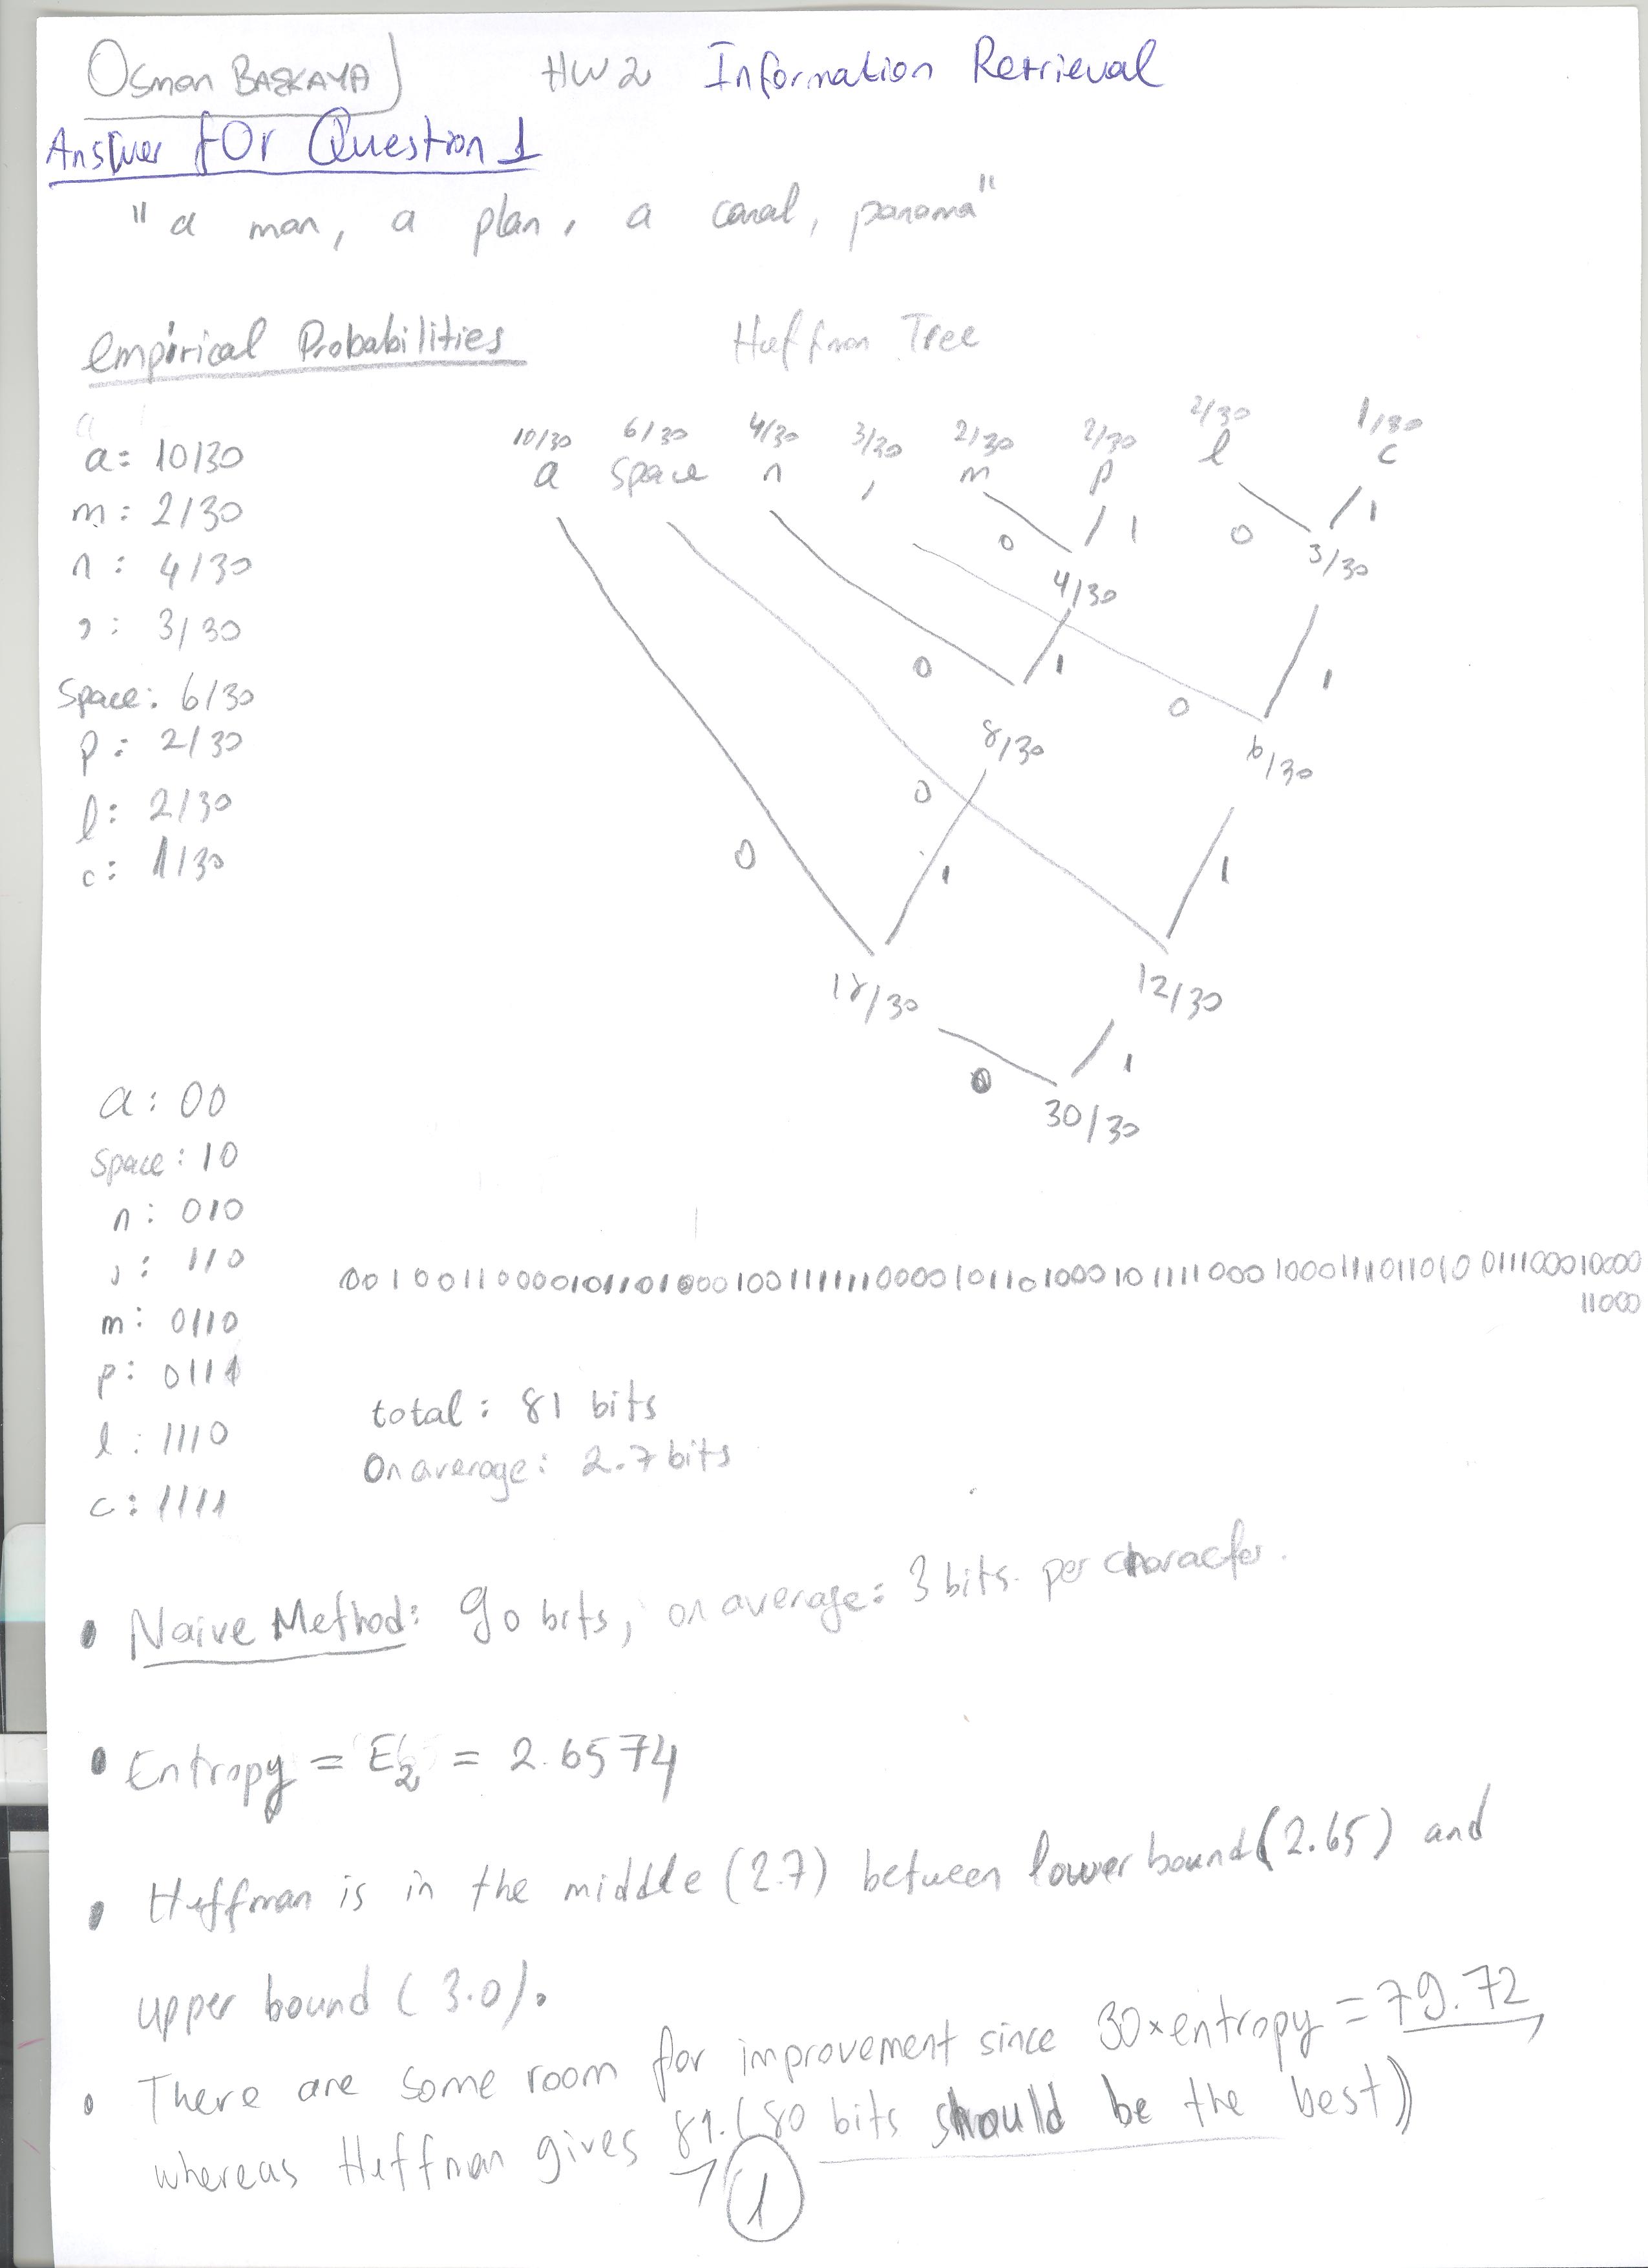 Osman BASKAYA HW2 Information Retrieval
Answer for Question 1
"a man, a plan, a canal, panama"
Empirical Probabilities Huffman Tree
a: 10/30
m: 2/30
n: 4/30
,: 3/30
Space: 6/30
p: 2/30
l: 2/30
c: 1/30
10/30 6/30 4/30 3/30 2/30 2/30 2/30 1/30
a space n , m p l c
0 1 0 1
4/30 3/30
0 1 0 1
8/30 6/30
0 1 0 1
18/30 12/30
0 1
30/30
a: 00
Space: 10
n: 010
,: 110
m: 0110
p: 0111
l: 1110
c: 1111
11000
total: 81 bits
On average: 2.7 bits
• Naive Method: 90 bits, on average: 3 bits. per character.
• Entropy = E2 = 2.6574
• Huffman is in the middle (2.7) between lower bound (2.65) and
upper bound (3.0).
• There are some room for improvement since 30×entropy = 79.72
whereas Huffman gives 81. (80 bits should be the best)
1